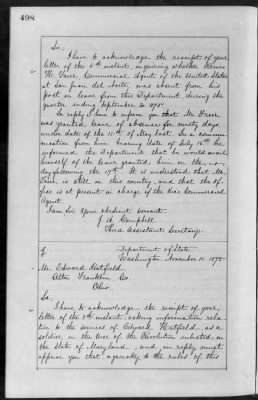 498
Sir,
I have to acknowledge the receipt of your
letter of the 6th instant, inquiring whether
H. Freer, Commercial Agent of the United States
at San Juan del Norte, was absent from his
post on leave from this Department, during the
quarter ending September 30, 1875.
In reply I have to inform you that Mr. Freer
was granted leave of absence for ninety days,
under date of the 10th of May last. In a commu-
nication from him bearing date of July 16th he
informed the Department that he would avail
himself of the leave granted him on the
day following the 17th. It is understood that Mr.
Freer is still in this country, and that the of-
fice is at present in charge of the Vice Commercial
Agent.
I am Sir, Your obedient servant.
J. A. Campbell
Third Assistant Secretary.
Department of State,
Washington, November 11, 1875.
Mr. Edward Hatfield,
Franklin Co.
Ohio.
Sir,
I have to acknowledge the receipt of your
letter of the 8th instant, asking information rela-
tive to the services of Edward Hatfield, as a
soldier in the War of the Revolution enlisted in
the State of Maryland, and in reply must
apprise you that agreeably to the rules of this